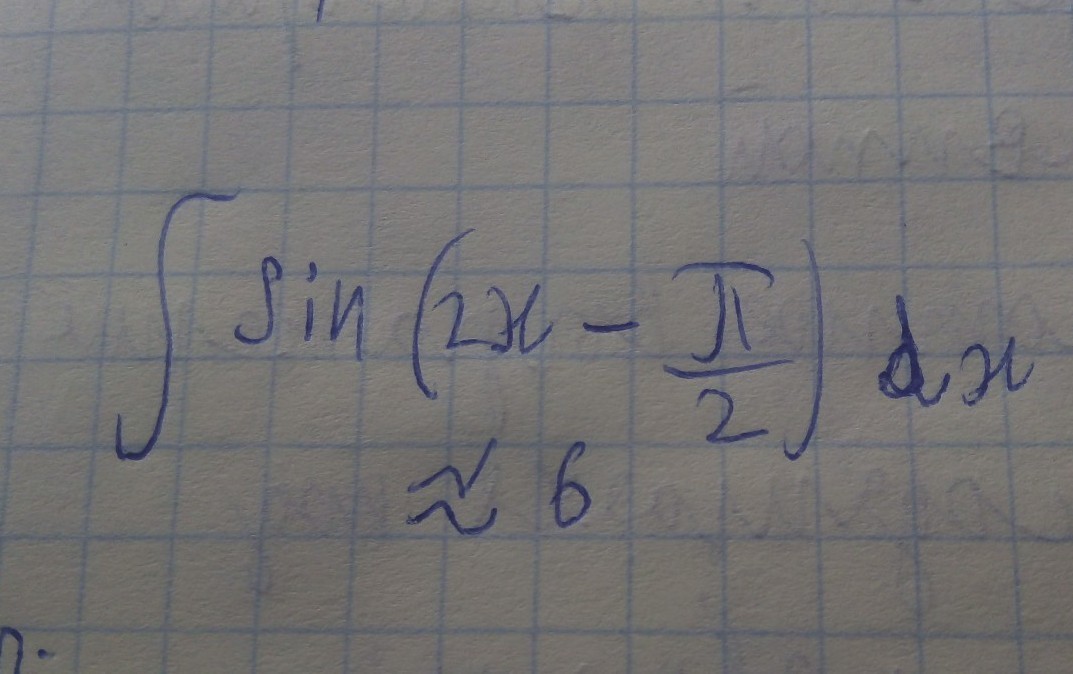 ∫ sin (2x - π/2) dx
≈ 6